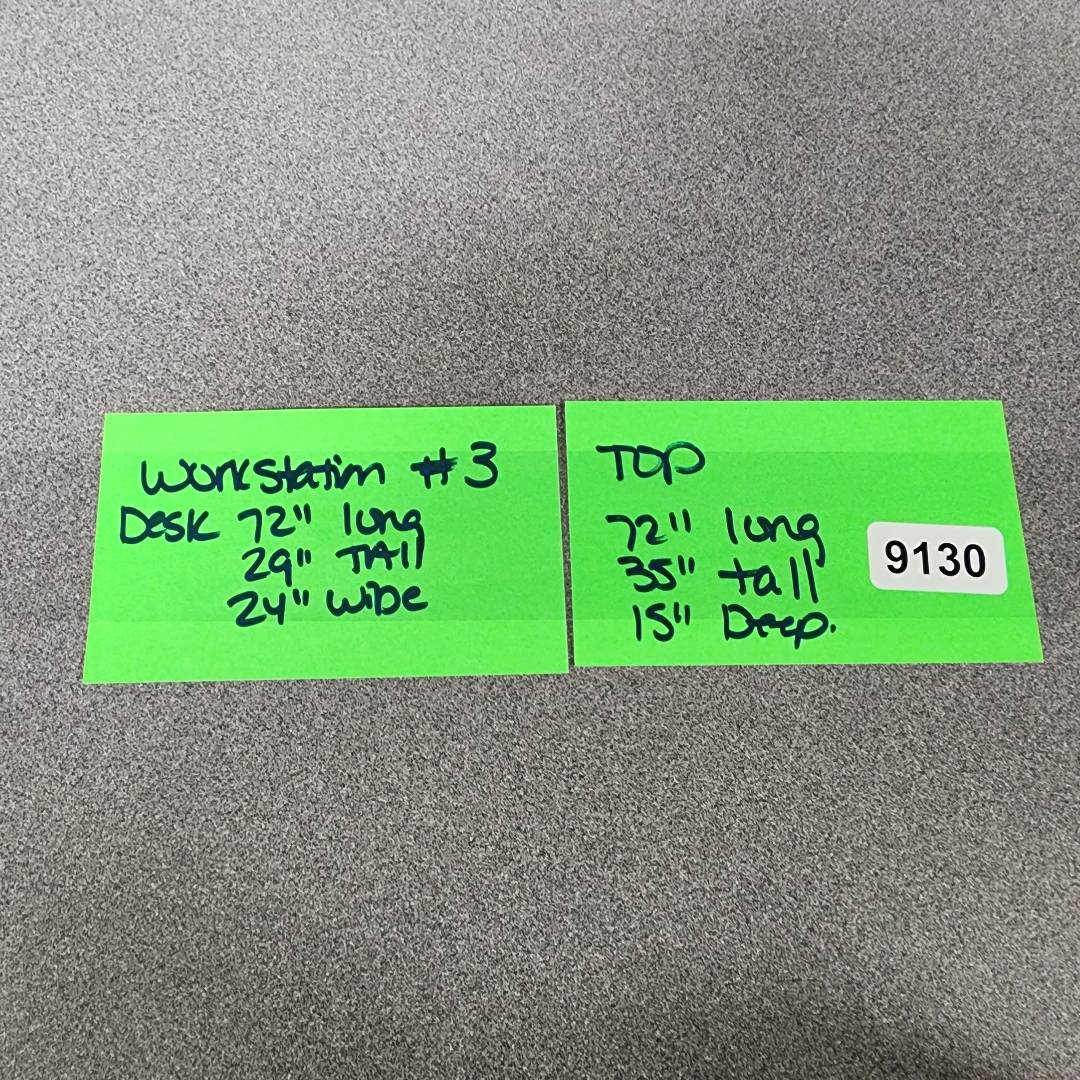 Workstation #3
Desk 72" long
29" TAll
24" WiDe
TOP
72" long
35" tall
15" Deep.
9130